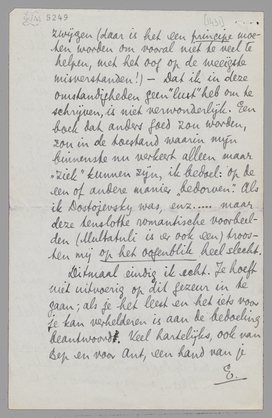 5249
zwijgen (daar is het een principe moe-
ten worden om vooral niet te veel te
helpen, met het oog op de weeïgste
misverstanden!) — Dat ik in deze
omstandigheden geen "lust" heb om te
schrijven, is niet verwonderlijk. Een
boek dat anders goed zou worden,
zou in de toestand waarin mijn
binnenste nu verkeert alleen maar
"ziel" kunnen zijn, ik bedoel: op de
een of andere manier "bedorven". Als
ik Dostojevsky was, enz..... maar
deze tenslotte romantische voorbeel-
den (Multatuli is er ook een) troos-
ten mij op het oogenblik heel slecht.
Ditmaal eindig ik echt. Je hoeft
niet uitvoerig op dit gezeur in te
gaan; als je het leest en het iets voor
je kan verhelderen is aan de bedoeling
beantwoord. Veel hartelijks, ook van
Bep en voor Ant, een hand van je
E.